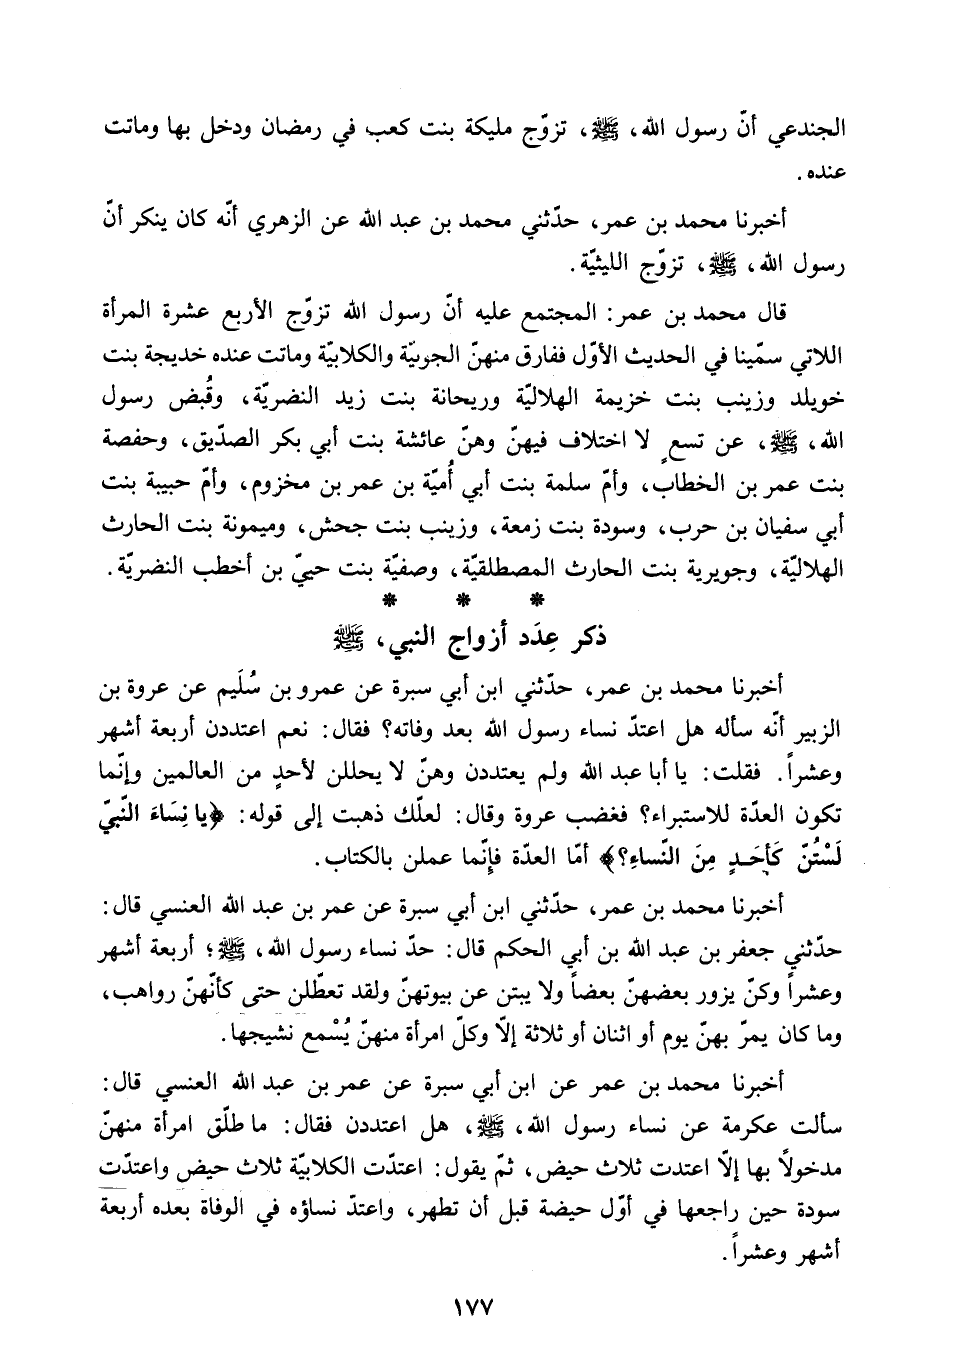 الجندعي أنّ رسول الله، ﷺ، تزوّج مليكة بنت كعب في رمضان ودخل بها وماتت
عنده.
أخبرنا محمد بن عمر، حدّثني محمد بن عبد الله عن الزهري أنّه كان ينكر أنّ
رسول الله، ﷺ، تزوّج الليثيّة.
قال محمد بن عمر: المجتمع عليه أنّ رسول الله تزوّج الأربع عشرة المرأة
اللاتي سمّينا في الحديث الأوّل ففارق منهنّ الجونيّة والكلابيّة وماتت عنده خديجة بنت
خويلد وزينب بنت خزيمة الهلاليّة وريحانة بنت زيد النضريّة، وقُبض رسول
الله، ﷺ، عن تسعٍ لا اختلاف فيهنّ وهنّ عائشة بنت أبي بكر الصدّيق، وحفصة
بنت عمر بن الخطاب، وأمّ سلمة بنت أبي أُميّة بن عمر بن مخزوم، وأمّ حبيبة بنت
أبي سفيان بن حرب، وسودة بنت زمعة، وزينب بنت جحش، وميمونة بنت الحارث
الهلاليّة، وجويرية بنت الحارث المصطلقيّة، وصفيّة بنت حييّ بن أخطب النضريّة.
* * *
ذكر عِدَد أزواج النبي، ﷺ
أخبرنا محمد بن عمر، حدّثني ابن أبي سبرة عن عمرو بن سُلَيم عن عروة بن
الزبير أنّه سأله هل اعتدّ نساء رسول الله بعد وفاته؟ فقال: نعم اعتددن أربعة أشهر
وعشراً. فقلت: يا أبا عبد الله ولم يعتددن وهنّ لا يحللن لأحدٍ من العالمين وإنّما
تكون العدّة للاستبراء؟ فغضب عروة وقال: لعلّك ذهبت إلى قوله: ﴿يا نِسَاءَ النّبيّ
لَسْتُنّ كَأحَدٍ مِنَ النّساءِ؟﴾ أمّا العدّة فإنّما عملن بالكتاب.
أخبرنا محمد بن عمر، حدّثني ابن أبي سبرة عن عمر بن عبد الله العنسي قال:
حدّثني جعفر بن عبد الله بن أبي الحكم قال: حدّ نساء رسول الله، ﷺ؛ أربعة أشهر
وعشراً وكنّ يزور بعضهنّ بعضاً ولا يبتن عن بيوتهنّ ولقد تعطّلن حتى كأنّهنّ رواهب،
وما كان يمرّ بهنّ يوم أو اثنان أو ثلاثة إلّا وكلّ امرأة منهنّ يُسْمع نشيجها.
أخبرنا محمد بن عمر عن ابن أبي سبرة عن عمر بن عبد الله العنسي قال:
سألت عكرمة عن نساء رسول الله، ﷺ، هل اعتددن فقال: ما طلّق امرأة منهنّ
مدخولاً بها إلّا اعتدت ثلاث حيض، ثمّ يقول: اعتدّت الكلابيّة ثلاث حيض واعتدّت
سودة حين راجعها في أوّل حيضة قبل أن تطهر، واعتدّ نساؤه في الوفاة بعده أربعة
أشهر وعشراً.
١٧٧